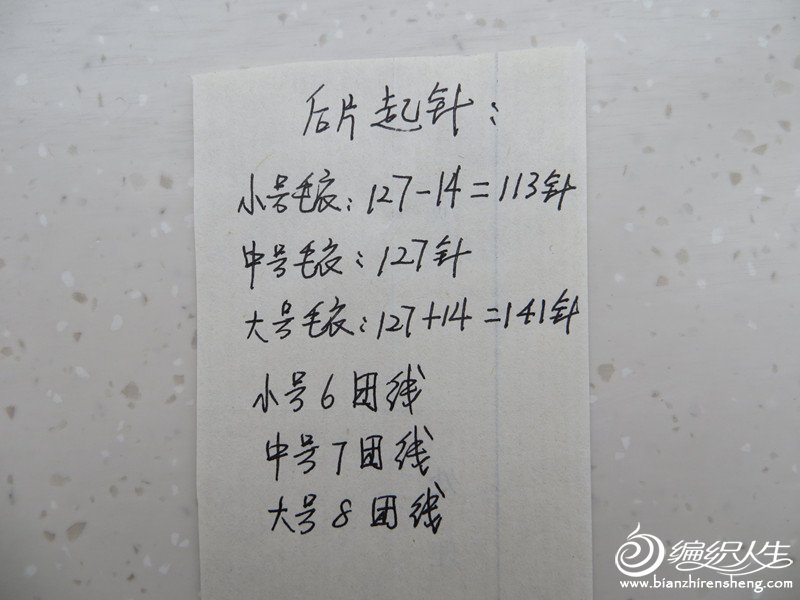 后片起针：
小号毛衣：127-14=113针
中号毛衣：127针
大号毛衣：127+14=141针
小号6团线
中号7团线
大号8团线
编织人生
www.bianzhirensheng.com